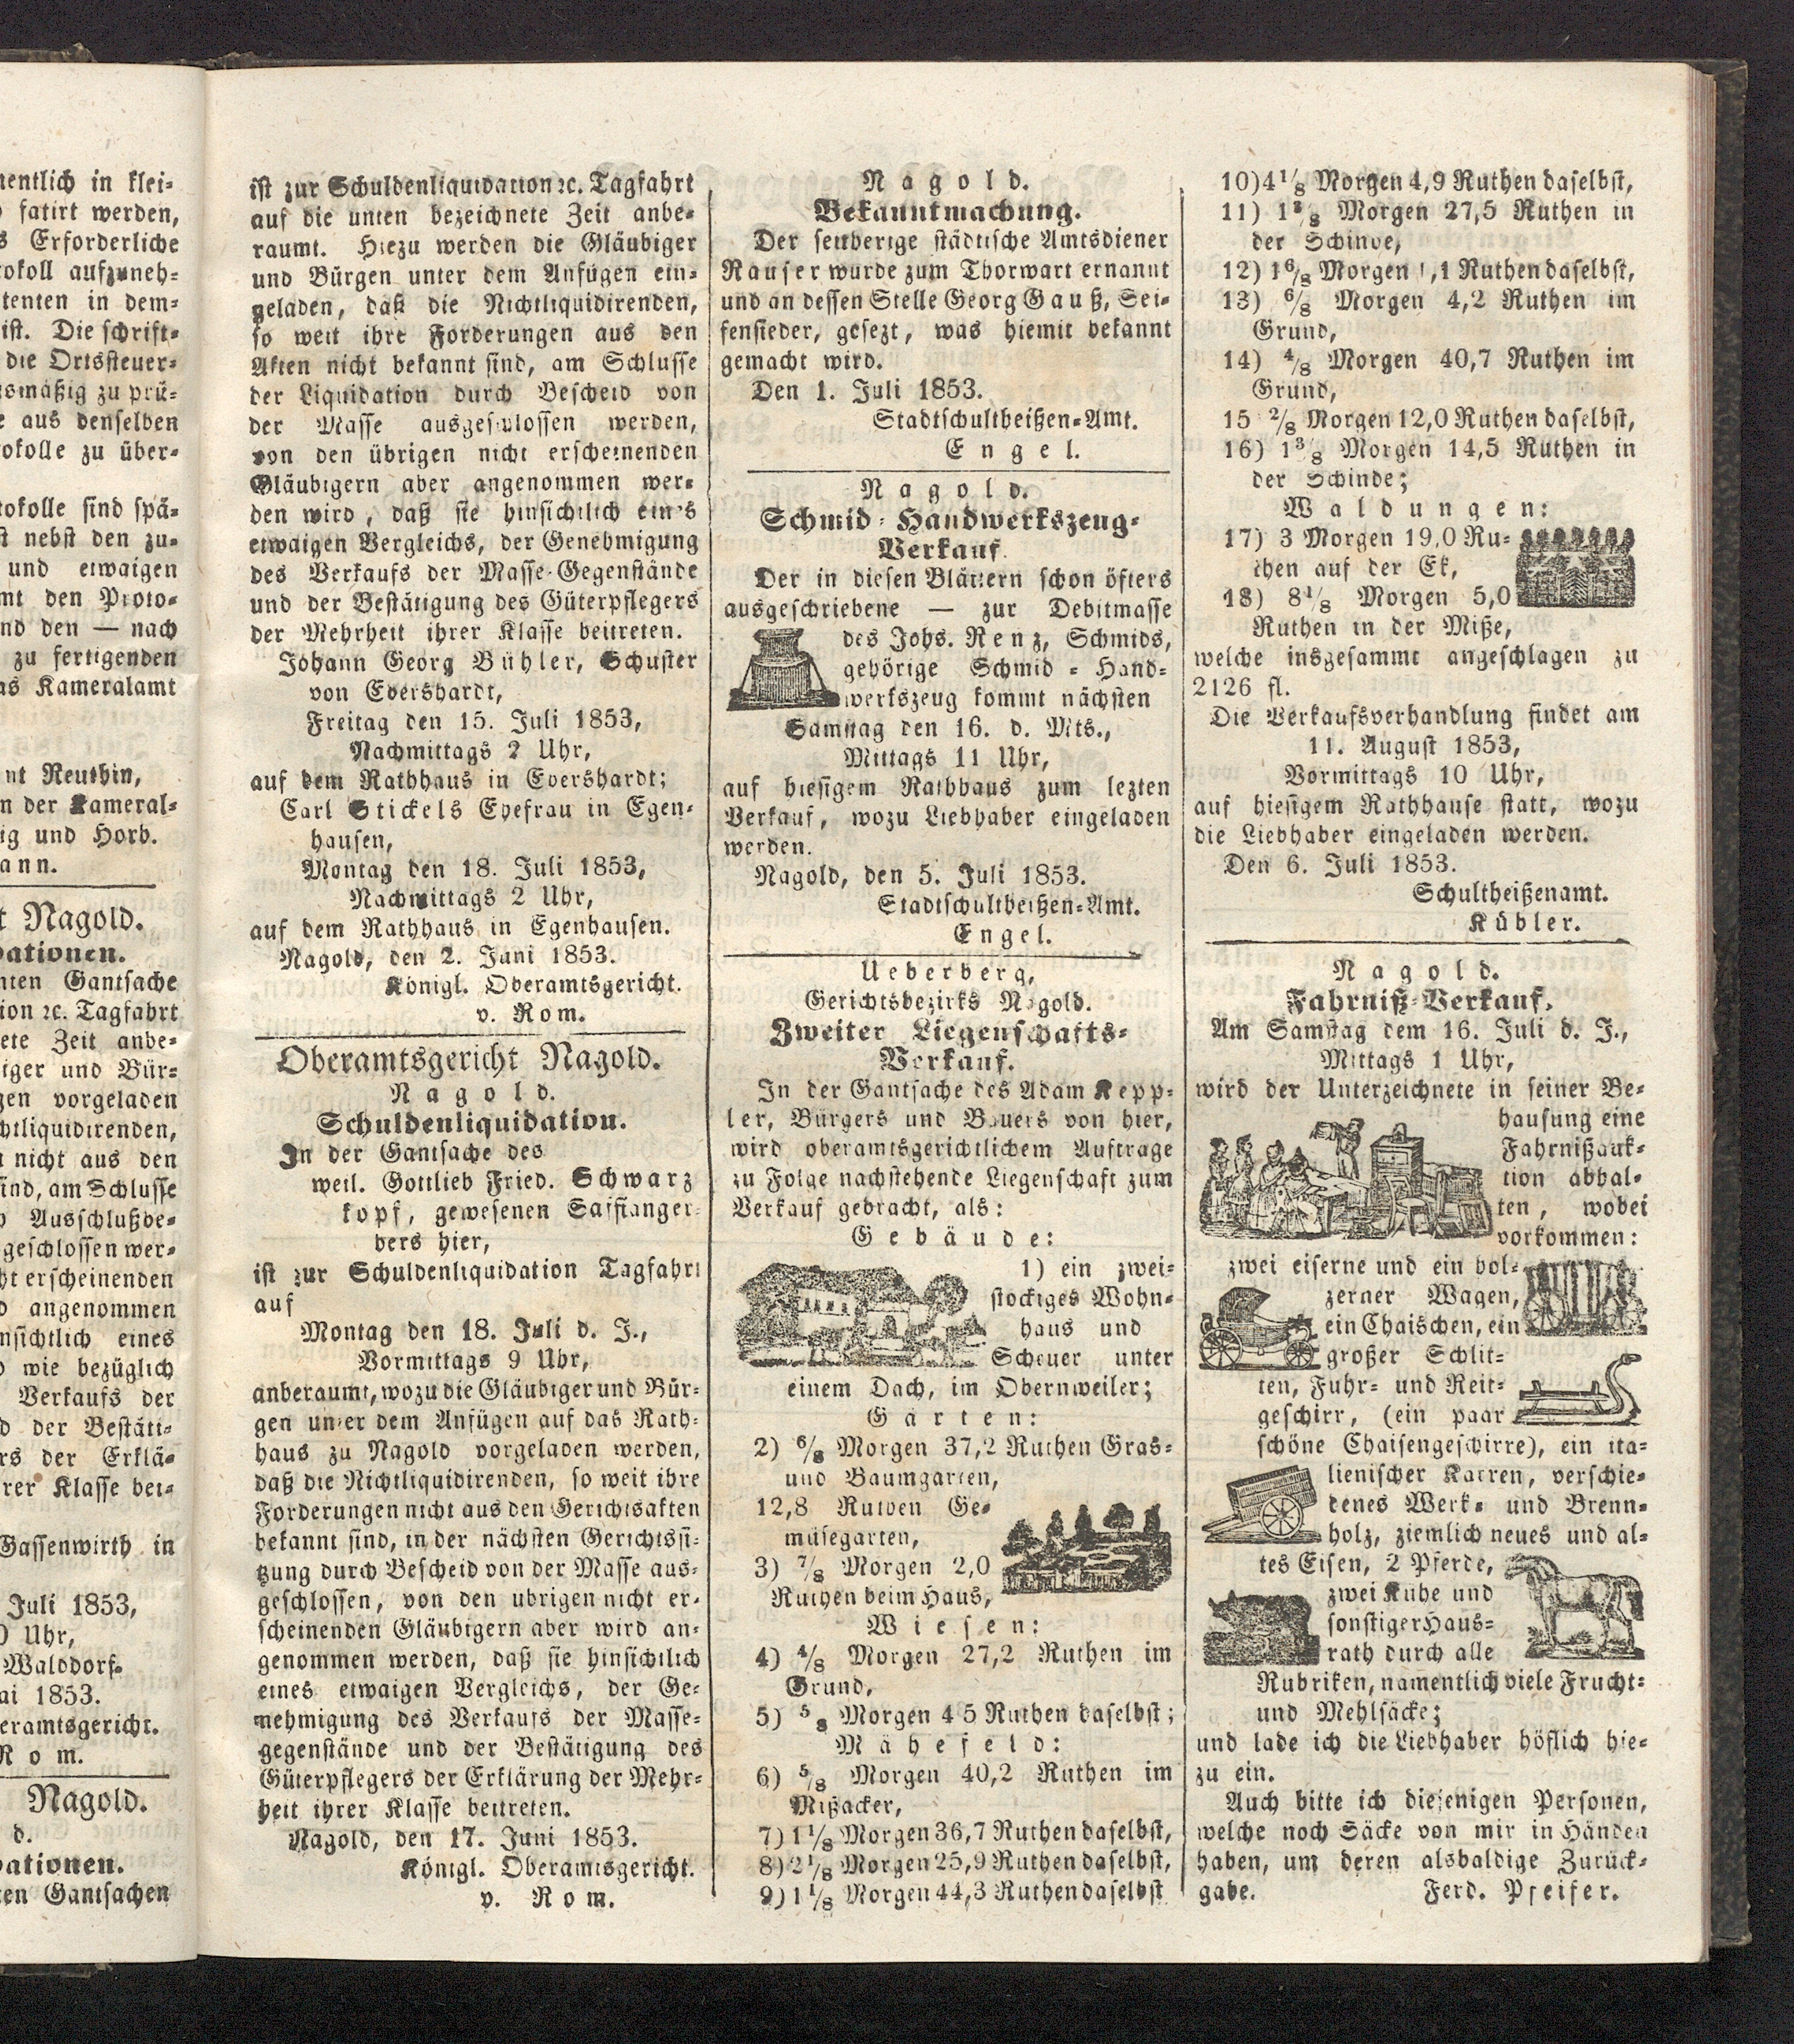 nentlich in klei-
fatirt werden,
s Erforderliche
tokoll aufzuneh-
tenten in dem-
ist. Die schrift-
die Ortssteuer-
smäßig zu prü-
e aus denselben
okolle zu über-
tokolle sind spä-
st nebst den zu-
und etwaigen
mt den Proto-
nd den — nach
zu fertigenden
as Kameralamt
nt Reuthin,
n der Kameral-
ig und Horb.
ann.
t Nagold.
dationen.
nten Gantsache
tion ꝛc. Tagfahrt
ete Zeit anbe-
iger und Bür-
gen vorgeladen
chtliquidirenden,
nicht aus den
sind, am Schlusse
Ausschlußbe-
geschlossen wer-
ht erscheinenden
angenommen
nsichtlich eines
wie bezüglich
Verkaufs der
d der Bestäti-
rs der Erklä-
rer Klasse bei-
Gassenwirth in
Juli 1853,
Uhr,
Walddorf.
ai 1853.
eramtsgericht.
Rom.
Nagold.
d.
dationen.
ten Gantsachen
ist zur Schuldenliquidation ꝛc. Tagfahrt
auf die unten bezeichnete Zeit anbe-
raumt. Hiezu werden die Gläubiger
und Bürgen unter dem Anfügen ein-
geladen, daß die Nichtliquidirenden,
so weit ihre Forderungen aus den
Akten nicht bekannt sind, am Schlusse
der Liquidation durch Bescheid von
der Masse ausgeschlossen werden,
von den übrigen nicht erscheinenden
Gläubigern aber angenommen wer-
den wird, daß sie hinsichtlich eines
etwaigen Vergleichs, der Genehmigung
des Verkaufs der Masse-Gegenstände
und der Bestätigung des Güterpflegers
der Mehrheit ihrer Klasse beitreten.
Johann Georg Bühler, Schuster
von Ebershardt,
Freitag den 15. Juli 1853,
Nachmittags 2 Uhr,
auf dem Rathhaus in Ebershardt;
Carl Stickels Ehefrau in Egen-
hausen,
Montag den 18. Juli 1853,
Nachmittags 2 Uhr,
auf dem Rathhaus in Egenhausen.
Nagold, den 2. Juni 1853.
Königl. Oberamtsgericht.
v. Rom.
Oberamtsgericht Nagold.
Nagold.
Schuldenliquidation.
In der Gantsache des
weil. Gottlieb Fried. Schwarz
kopf, gewesenen Saffianger-
bers hier,
ist zur Schuldenliquidation Tagfahrt
auf
Montag den 18. Juli d. J.,
Vormittags 9 Uhr,
anberaumt, wozu die Gläubiger und Bür-
gen unter dem Anfügen auf das Rath-
haus zu Nagold vorgeladen werden,
daß die Nichtliquidirenden, so weit ihre
Forderungen nicht aus den Gerichtsakten
bekannt sind, in der nächsten Gerichtssi-
tzung durch Bescheid von der Masse aus-
geschlossen, von den übrigen nicht er-
scheinenden Gläubigern aber wird an-
genommen werden, daß sie hinsichtlich
eines etwaigen Vergleichs, der Ge-
nehmigung des Verkaufs der Masse-
gegenstände und der Bestätigung des
Güterpflegers der Erklärung der Mehr-
heit ihrer Klasse beitreten.
Nagold, den 17. Juni 1853.
Königl. Oberamtsgericht.
v. Rom.
Nagold.
Bekanntmachung.
Der seitherige städtische Amtsdiener
Rauser wurde zum Thorwart ernannt
und an dessen Stelle Georg Gauß, Sei-
fensieder, gesezt, was hiemit bekannt
gemacht wird.
Den 1. Juli 1853.
Stadtschultheißen-Amt.
Engel.
Nagold.
Schmid-Handwerkszeug-
Verkauf.
Der in diesen Blättern schon öfters
ausgeschriebene — zur Debitmasse
des Johs. Renz, Schmids,
gehörige Schmid-Hand-
werkszeug kommt nächsten
Samstag den 16. d. Mts.,
Mittags 11 Uhr,
auf hiesigem Rathhaus zum lezten
Verkauf, wozu Liebhaber eingeladen
werden.
Nagold, den 5. Juli 1853.
Stadtschultheißen-Amt.
Engel.
Ueberberg,
Gerichtsbezirks Nagold.
Zweiter Liegenschafts-
Verkauf.
In der Gantsache des Adam Kepp-
ler, Bürgers und Bauers von hier,
wird oberamtsgerichtlichem Auftrage
zu Folge nachstehende Liegenschaft zum
Verkauf gebracht, als:
Gebäude:
1) ein zwei-
stockiges Wohn-
haus und
Scheuer unter
einem Dach, im Obernweiler;
Gärten:
2) 6/8 Morgen 37,2 Ruthen Gras-
und Baumgarten,
12,8 Ruthen Ge-
müsegarten,
3) 7/8 Morgen 2,0
Ruthen beim Haus,
Wiesen:
4) 4/8 Morgen 27,2 Ruthen im
Grund,
5) 5/8 Morgen 4 5 Ruthen daselbst;
Mähefeld:
6) 5/8 Morgen 40,2 Ruthen im
Mißacker,
7) 1 1/8 Morgen 36,7 Ruthen daselbst,
8) 2 1/8 Morgen 25,9 Ruthen daselbst,
9) 1 1/8 Morgen 44,3 Ruthen daselbst
10) 4 1/8 Morgen 4,9 Ruthen daselbst,
11) 1 3/8 Morgen 27,5 Ruthen in
der Schinde,
12) 1 6/8 Morgen 1,1 Ruthen daselbst,
13) 6/8 Morgen 4,2 Ruthen im
Grund,
14) 4/8 Morgen 40,7 Ruthen im
Grund,
15 2/8 Morgen 12,0 Ruthen daselbst,
16) 1 3/8 Morgen 14,5 Ruthen in
der Schinde;
Waldungen:
17) 3 Morgen 19,0 Ru-
then auf der Ek,
18) 8 1/8 Morgen 5,0
Ruthen in der Miße,
welche insgesammt angeschlagen zu
2126 fl.
Die Verkaufsverhandlung findet am
11. August 1853,
Vormittags 10 Uhr,
auf hiesigem Rathhause statt, wozu
die Liebhaber eingeladen werden.
Den 6. Juli 1853.
Schultheißenamt.
Kübler.
Nagold.
Fahrniß-Verkauf.
Am Samstag dem 16. Juli d. J.,
Mittags 1 Uhr,
wird der Unterzeichnete in seiner Be-
hausung eine
Fahrnißauk-
tion abhal-
ten, wobei
vorkommen:
zwei eiserne und ein höl-
zerner Wagen,
ein Chaischen, ein
großer Schlit-
ten, Fuhr- und Reit-
geschirr, (ein paar
schöne Chaisengeschirre), ein ita-
lienischer Karren, verschie-
denes Werk- und Brenn-
holz, ziemlich neues und al-
tes Eisen, 2 Pferde,
zwei Kühe und
sonstiger Haus-
rath durch alle
Rubriken, namentlich viele Frucht-
und Mehlsäcke;
und lade ich die Liebhaber höflich hie-
zu ein.
Auch bitte ich diejenigen Personen,
welche noch Säcke von mir in Händen
haben, um deren alsbaldige Zurück-
gabe. Ferd. Pfeifer.